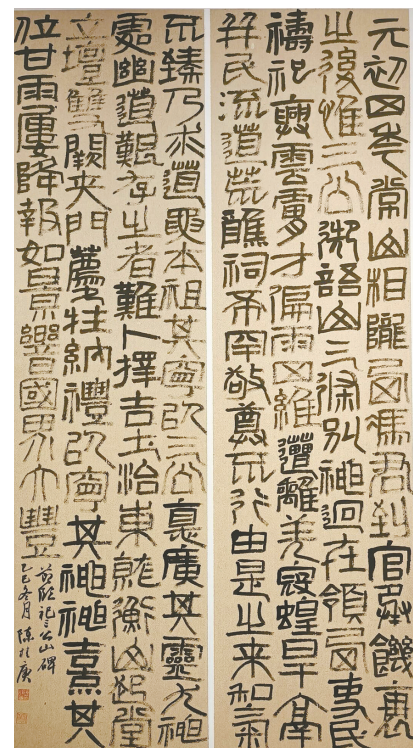 元初四年常山相隴西馮君到官承饑衰
之後惟三公御語山三條別神迥在領西吏民
禱祀興雲膚寸偏雨四維遭離羌寇蝗旱鬲
并民流道荒醮祠希罕敬奠不行由是之來和氣
不臻乃求道要本祖其寧以三公惪廣其靈尤神
處幽道艱存之者難卜擇吉土治東就衡山起堂
立壇雙闕夾門薦牲納禮以寧其神神熹其
位甘雨屢降報如景響國界大豐
節臨祀三公山碑
乙巳冬月 陳